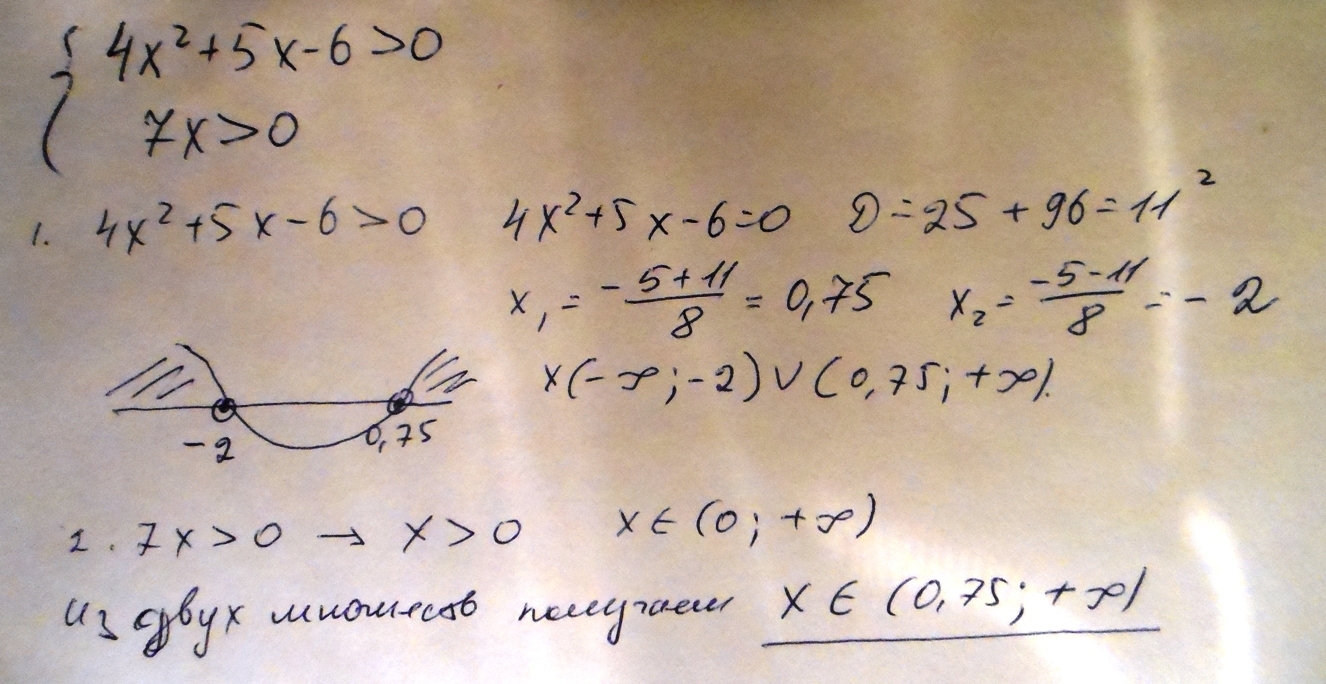 { 4x²+5x-6>0
7x>0
1. 4x²+5x-6>0 4x²+5x-6=0 D=25+96=11²
x₁ = -5+11/8 = 0,75 x₂ = -5-11/8 = -2
x(-∞;-2)∪(0,75;+∞).
-2 0,75
2. 7x>0 → x>0 x∈(0;+∞)
Из двух множеств получаем x∈(0,75;+∞)